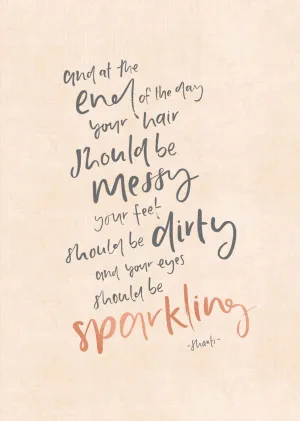 and at the
end of the day
your hair
should be
messy
your feet
should be dirty
and your eyes
should be
sparkling
-shanti-